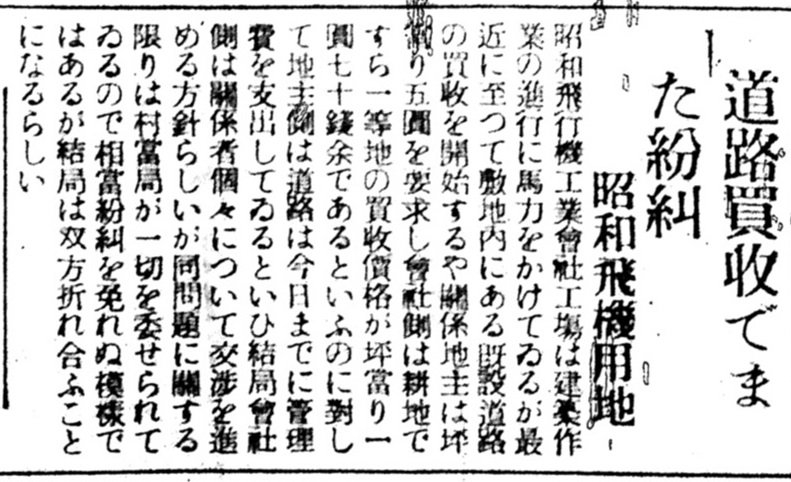 道路買收でま
た紛糾
昭和飛機用地
昭和飛行機工業會社工場は建築作
業の進行に馬力をかけてゐるが最
近に至つて敷地内にある既設道路
の買收を開始するや關係地主は坪
當り五圓を要求し會社側は耕地で
すら一等地の買收價格が坪當り一
圓七十錢余であるといふのに對し
て地主側は道路は今日までに管理
費を支出してゐるといひ結局會社
側は關係者個々について交渉を進
める方針らしいが同問題に關する
限りは村當局が一切を委せられて
ゐるので相當紛糾を免れぬ模樣で
はあるが結局は双方折れ合ふこと
になるらしい